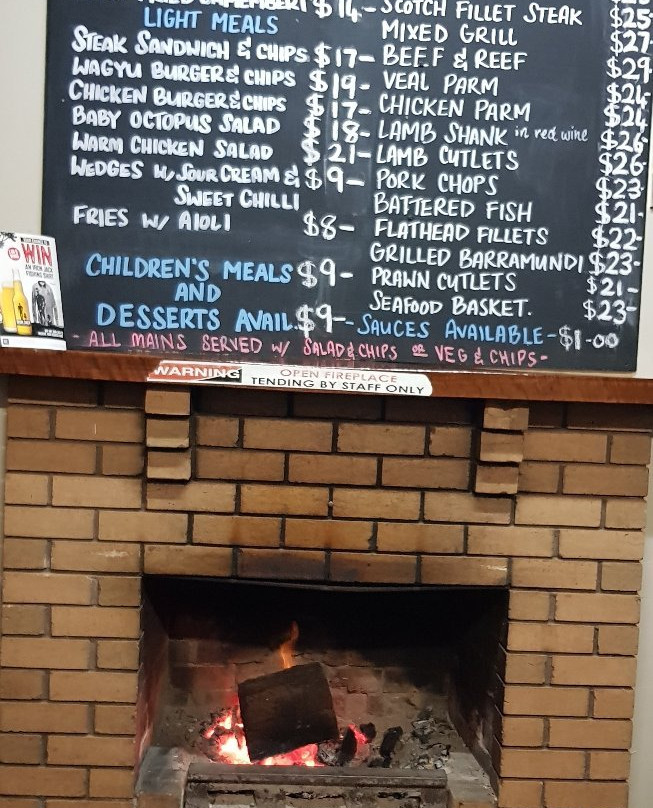 CAMEMBERT $14-
LIGHT MEALS
STEAK SANDWICH & CHIPS $17-
WAGYU BURGER & CHIPS $19-
CHICKEN BURGER & CHIPS $17-
BABY OCTOPUS SALAD $18-
WARM CHICKEN SALAD $21-
WEDGES W/ SOUR CREAM & $9-
SWEET CHILLI
FRIES W/ AIOLI $8-
CHILDREN'S MEALS $9-
AND
DESSERTS AVAIL. $9-
SCOTCH FILLET STEAK $25-
MIXED GRILL $27-
BEEF & REEF $29
VEAL PARM $24-
CHICKEN PARM $24
LAMB SHANK in red wine $26-
LAMB CUTLETS $26-
PORK CHOPS $23
BATTERED FISH $21-
FLATHEAD FILLETS $22-
GRILLED BARRAMUNDI $23-
PRAWN CUTLETS $21-
SEAFOOD BASKET. $23-
-SAUCES AVAILABLE-$1-00
- ALL MAINS SERVED W/ SALAD & CHIPS OR VEG & CHIPS -
WIN
WARNING
OPEN FIREPLACE
TENDING BY STAFF ONLY